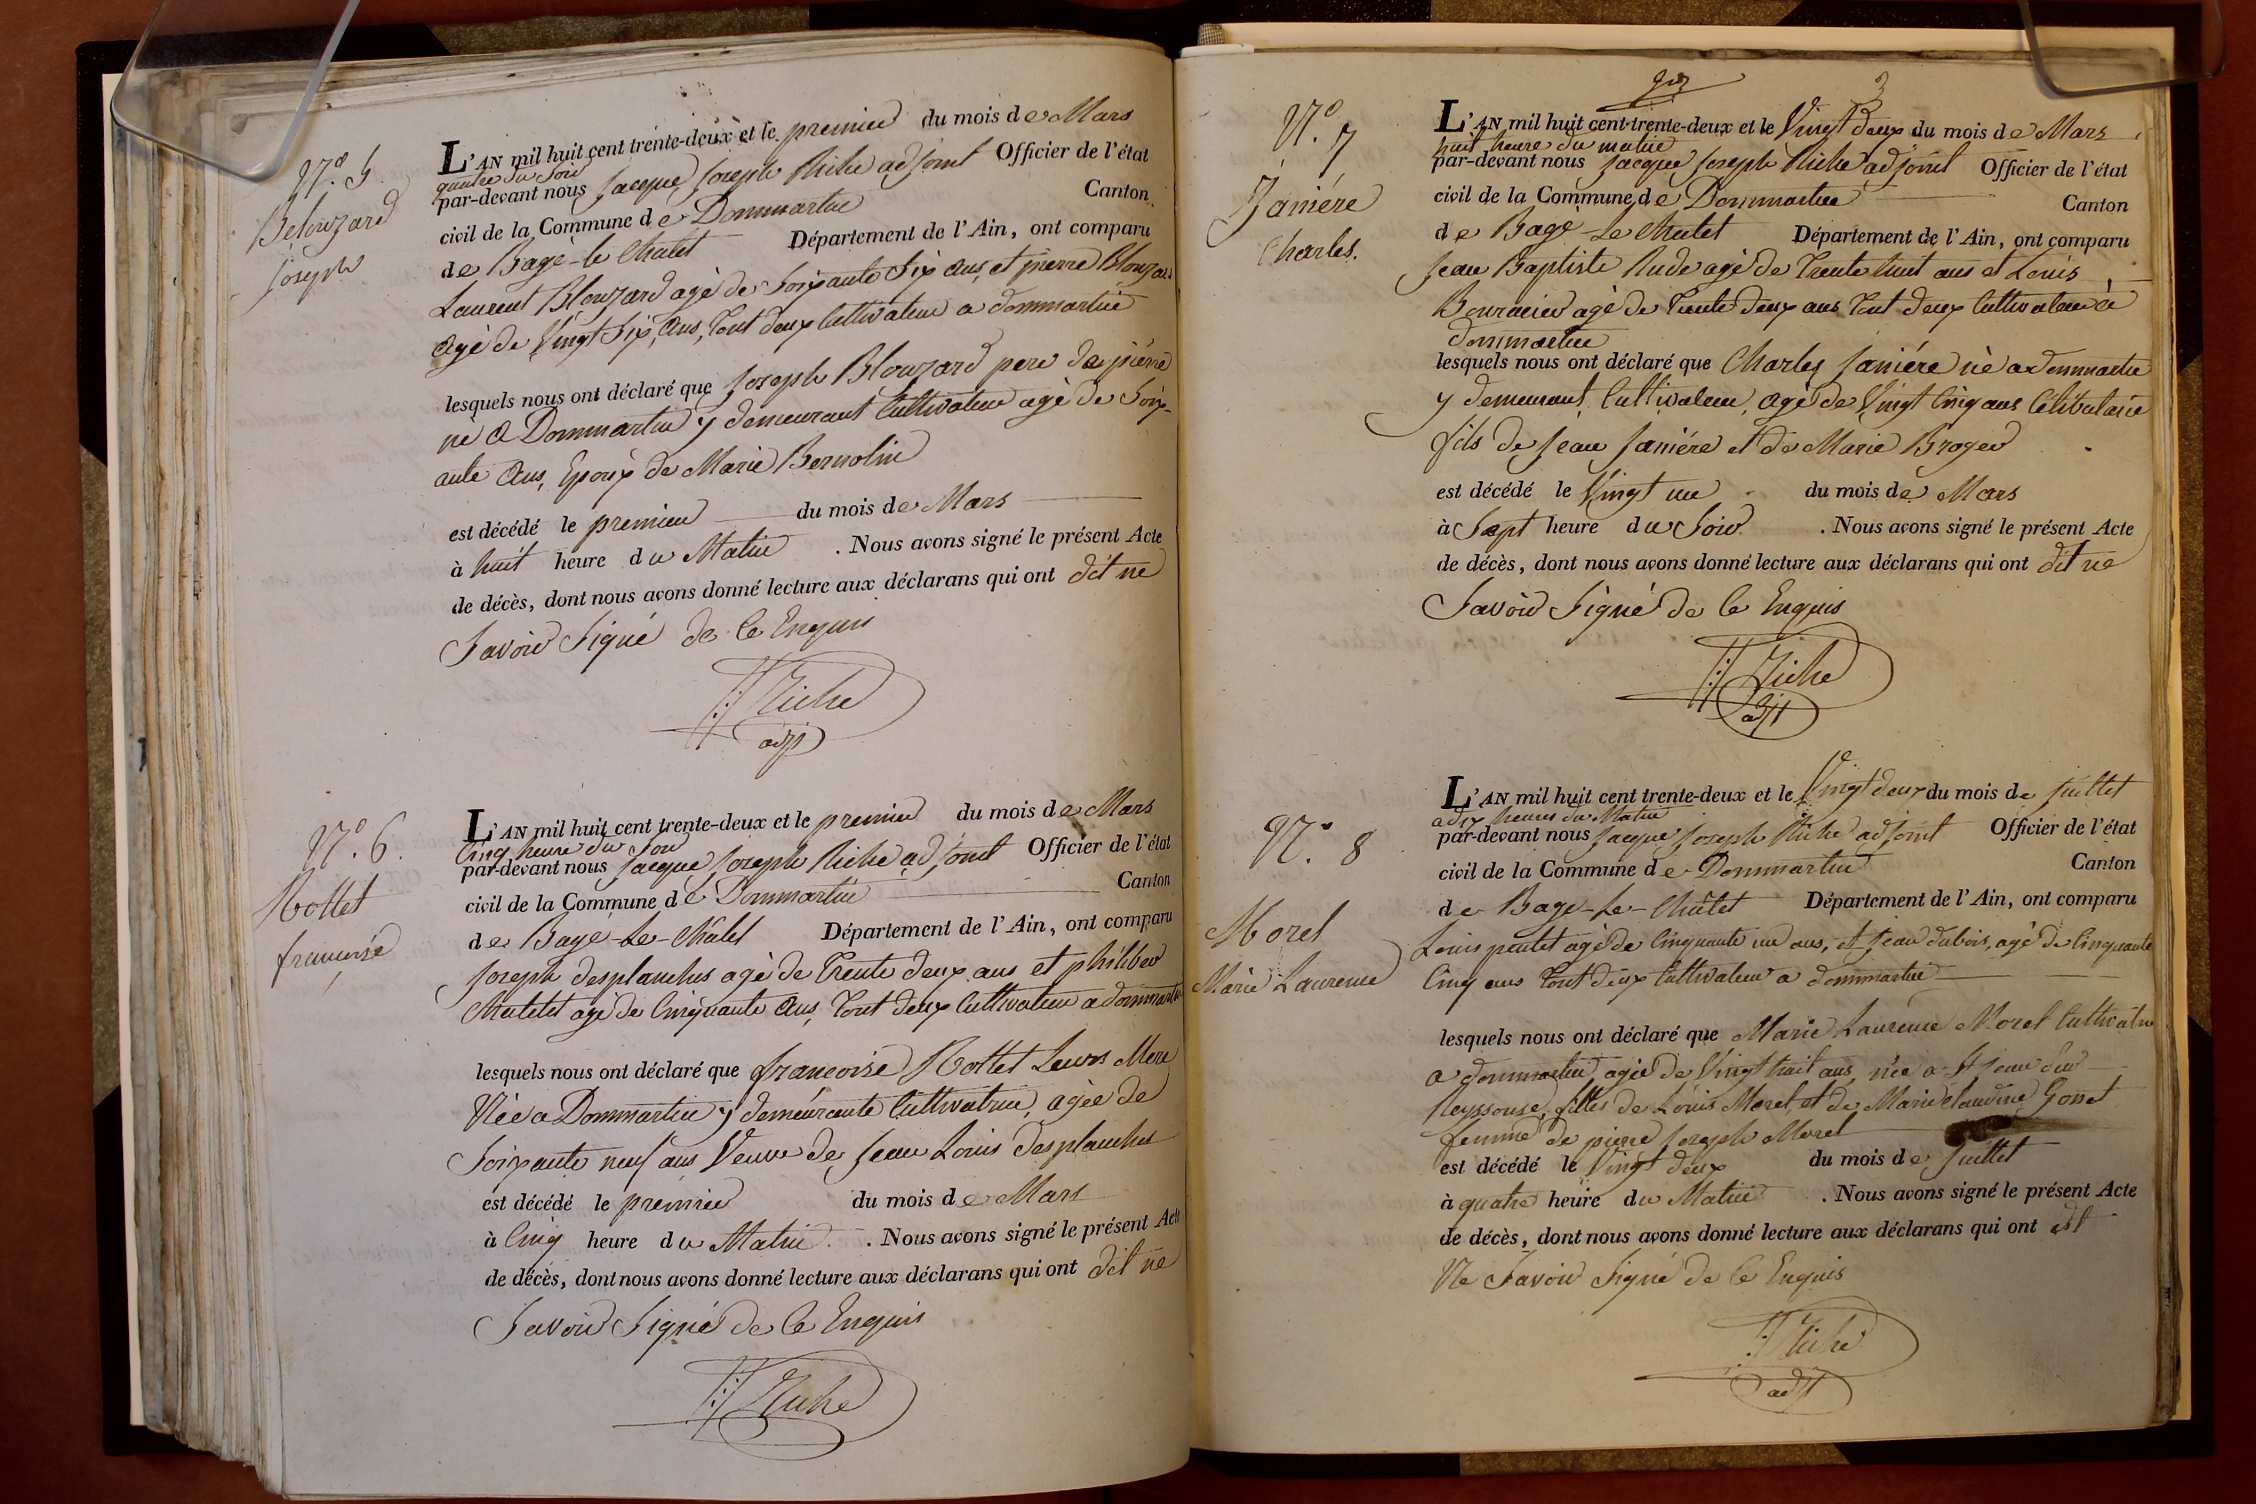 N.° 5.
Belouzard
Joseph
L'AN mil huit cent trente-deux et le premier du mois de Mars
quatre du Soir
par-devant nous Jacque Joseph Riche adjoint Officier de l'état
civil de la Commune de Dommartin Canton
de Bagé-le Chatel Département de l'Ain, ont comparu
Laurent Blouzard agé de Soixante Six ans, et pierre Blouzard
agé de Vingt Six, ans, tout deux Cultivateur a dommartin
lesquels nous ont déclaré que Joseph Blouzard pere de pierre
né a Dommartin y demeurant Cultivateur agé de Soix-
ante ans, Epoux de Marie Bernolin
est décédé le premier du mois de Mars
à huit heure du Matin . Nous avons signé le présent Acte
de décès, dont nous avons donné lecture aux déclarans qui ont dit ne
Savoir Signé de Ce Enquis
Riche
adjt
N.° 6.
Rollet
francoise
L'AN mil huit cent trente-deux et le premier du mois de Mars
Cinq heure du Soir
par-devant nous Jacque Joseph Riche adjoint Officier de l'état
civil de la Commune de Dommartin Canton
de Bagé-Le-Chatel Département de l'Ain, ont comparu
Joseph desplanches agé de Trente deux ans et philiber
Chatelet agé de Cinquante ans, tout deux Cultivateur a dommartin
lesquels nous ont déclaré que francoise Rollet Leurs Mere
Née a Dommartin y demeurante Cultivatrice, agée de
Soixante neuf ans Veuve de Jean Louis desplanches
est décédé le premier du mois de Mars
à Cinq heure du Matin . Nous avons signé le présent Acte
de décès, dont nous avons donné lecture aux déclarans qui ont dit ne
Savoir Signé de Ce Enquis
Riche
3
N.° 7
Janiére
Charles.
L'AN mil huit cent trente-deux et le Vingt deux du mois de Mars
huit heure du matin
par-devant nous Jacque Joseph Riche adjoint Officier de l'état
civil de la Commune de Dommartin Canton
de Bagé-Le Chatel Département de l'Ain, ont comparu
Jean Baptiste Rude agé de Trente huit ans et Louis
agé de Trente deux ans tout deux Cultivateur à
dommartin
lesquels nous ont déclaré que Charles Janiére né a dommartin
y demeurant, Cultivateur, agé de Vingt Cinq ans Celibataire
fils de Jean Janiére et de Marie Broyer
est décédé le Vingt un du mois de Mars
à Sept heure du Soir . Nous avons signé le présent Acte
de décès, dont nous avons donné lecture aux déclarans qui ont dit ne
Savoir Signé de Ce Enquis
Riche
adjt
N.° 8
Morel
Marie Laurence
L'AN mil huit cent trente-deux et le Vingt deux du mois de Juillet
a dix heures du Matin
par-devant nous Jacque Joseph Riche adjoint Officier de l'état
civil de la Commune de Dommartin Canton
de Bagé-Le-Châtel Département de l'Ain, ont comparu
Louis pentet agé de Cinquante un ans, et Jean dubois, agé de Cinquante
Cinq ans tout deux Cultivateur a dommartin
lesquels nous ont déclaré que Marie Laurence Morel Cultivatrice
a dommartin agée de Vingt huit ans, née a St Jean Sur
Reyssouse, filles de Louis Morel, et de Marie Claudine Gonet
femme de pierre Joseph Morel
est décédé le Vingt deux du mois de Juillet
à quatre heure du Matin . Nous avons signé le présent Acte
de décès, dont nous avons donné lecture aux déclarans qui ont dit
Ne Savoir Signé de Ce Enquis
Riche
adjt